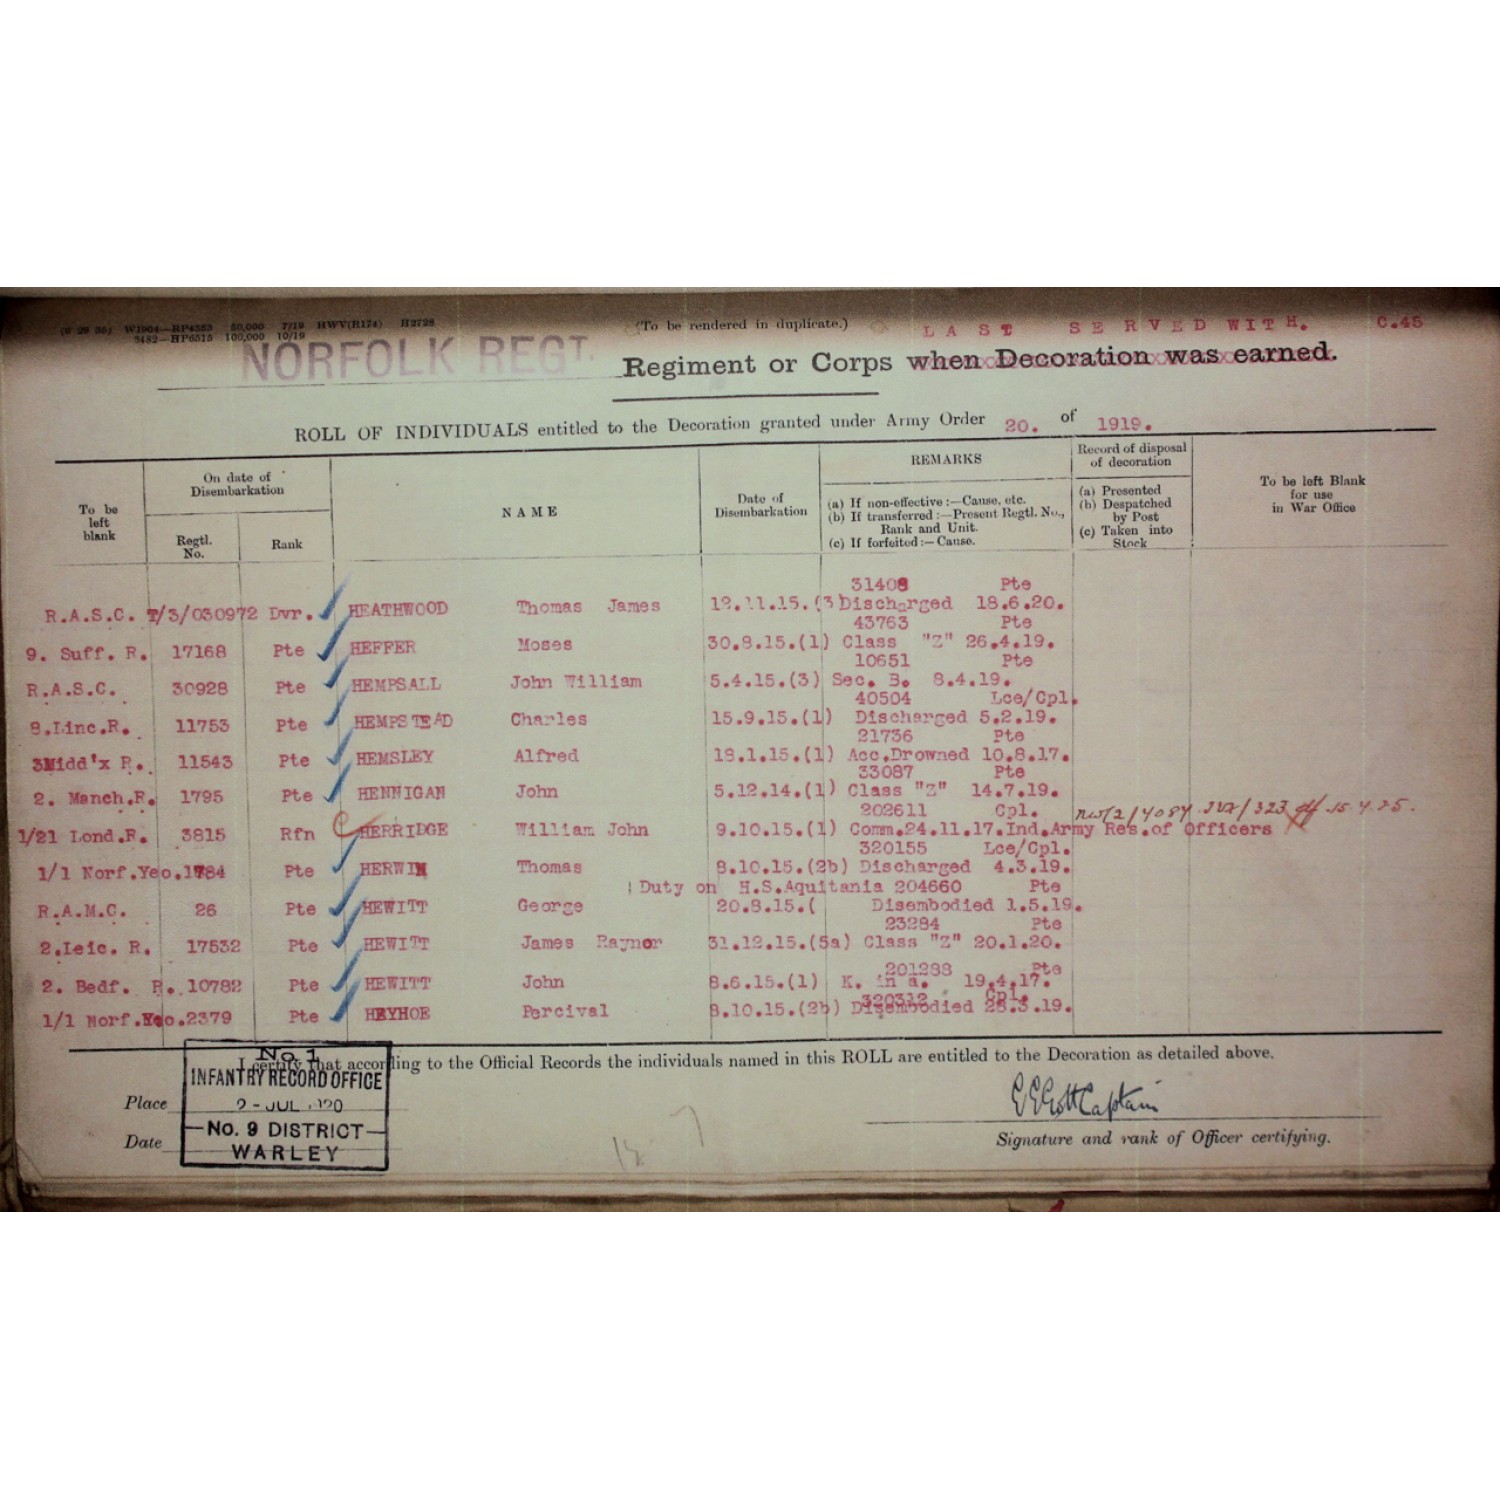 (6 29 35) W1904—RP4353 50,000 7/19 HWV(R174) H2728
3482—HP6515 100,000 10/19
(To be rendered in duplicate.)
LAST SERVED WITH. C.45
NORFOLK REGT. Regiment or Corps when Decoration was earned.
ROLL OF INDIVIDUALS entitled to the Decoration granted under Army Order 20. of 1919.
To be left blank
On date of Disembarkation
Regtl. No.
Rank
NAME
Date of Disembarkation
REMARKS
(a) If non-effective :—Cause, etc.
(b) If transferred :—Present Regtl. No.,
Rank and Unit.
(c) If forfeited :— Cause.
Record of disposal of decoration
(a) Presented
(b) Despatched by Post
(c) Taken into Stock
To be left Blank
for use
in War Office
31408 Pte
R.A.S.C. T/3/030972 Dvr. HEATHWOOD Thomas James 12.11.15.(3 Discharged 18.6.20.
43763 Pte
9. Suff. R. 17168 Pte HEFFER Moses 30.8.15.(1) Class "Z" 26.4.19.
10651 Pte
R.A.S.C. 30928 Pte HEMPSALL John William 5.4.15.(3) Sec. B. 8.4.19.
40504 Lce/Cpl.
8.Linc.R. 11753 Pte HEMPSTEAD Charles 15.9.15.(1) Discharged 5.2.19.
21736 Pte
3Midd'x R. 11543 Pte HEMSLEY Alfred 18.1.15.(1) Acc.Drowned 10.8.17.
33087 Pte
2. Manch.R. 1795 Pte HENNIGAN John 5.12.14.(1) Class "Z" 14.7.19.
202611 Cpl.
1/21 Lond.R. 3815 Rfn HERRIDGE William John 9.10.15.(1) Comm.24.11.17.Ind.Army Res.of Officers
320155 Lce/Cpl.
1/1 Norf.Yeo.1784 Pte HERWIN Thomas 8.10.15.(2b) Discharged 4.3.19.
Duty on H.S.Aquitania 204660 Pte
R.A.M.C. 26 Pte HEWITT George 20.8.15.( Disembodied 1.5.19.
23284 Pte
2.Leic. R. 17532 Pte HEWITT James Raynor 31.12.15.(5a) Class "Z" 20.1.20.
201288 Pte
2. Bedf. R. 10782 Pte HEWITT John 8.6.15.(1) K. in a. 19.4.17.
320312 Cpl.
1/1 Norf.Yeo.2379 Pte HEYHOE Percival 8.10.15.(2b) Disembodied 28.3.19.
I certify that according to the Official Records the individuals named in this ROLL are entitled to the Decoration as detailed above.
No. 1
INFANTRY RECORD OFFICE
2 - JUL 1920
No. 9 DISTRICT
WARLEY
Place
Date
Captain
Signature and rank of Officer certifying.